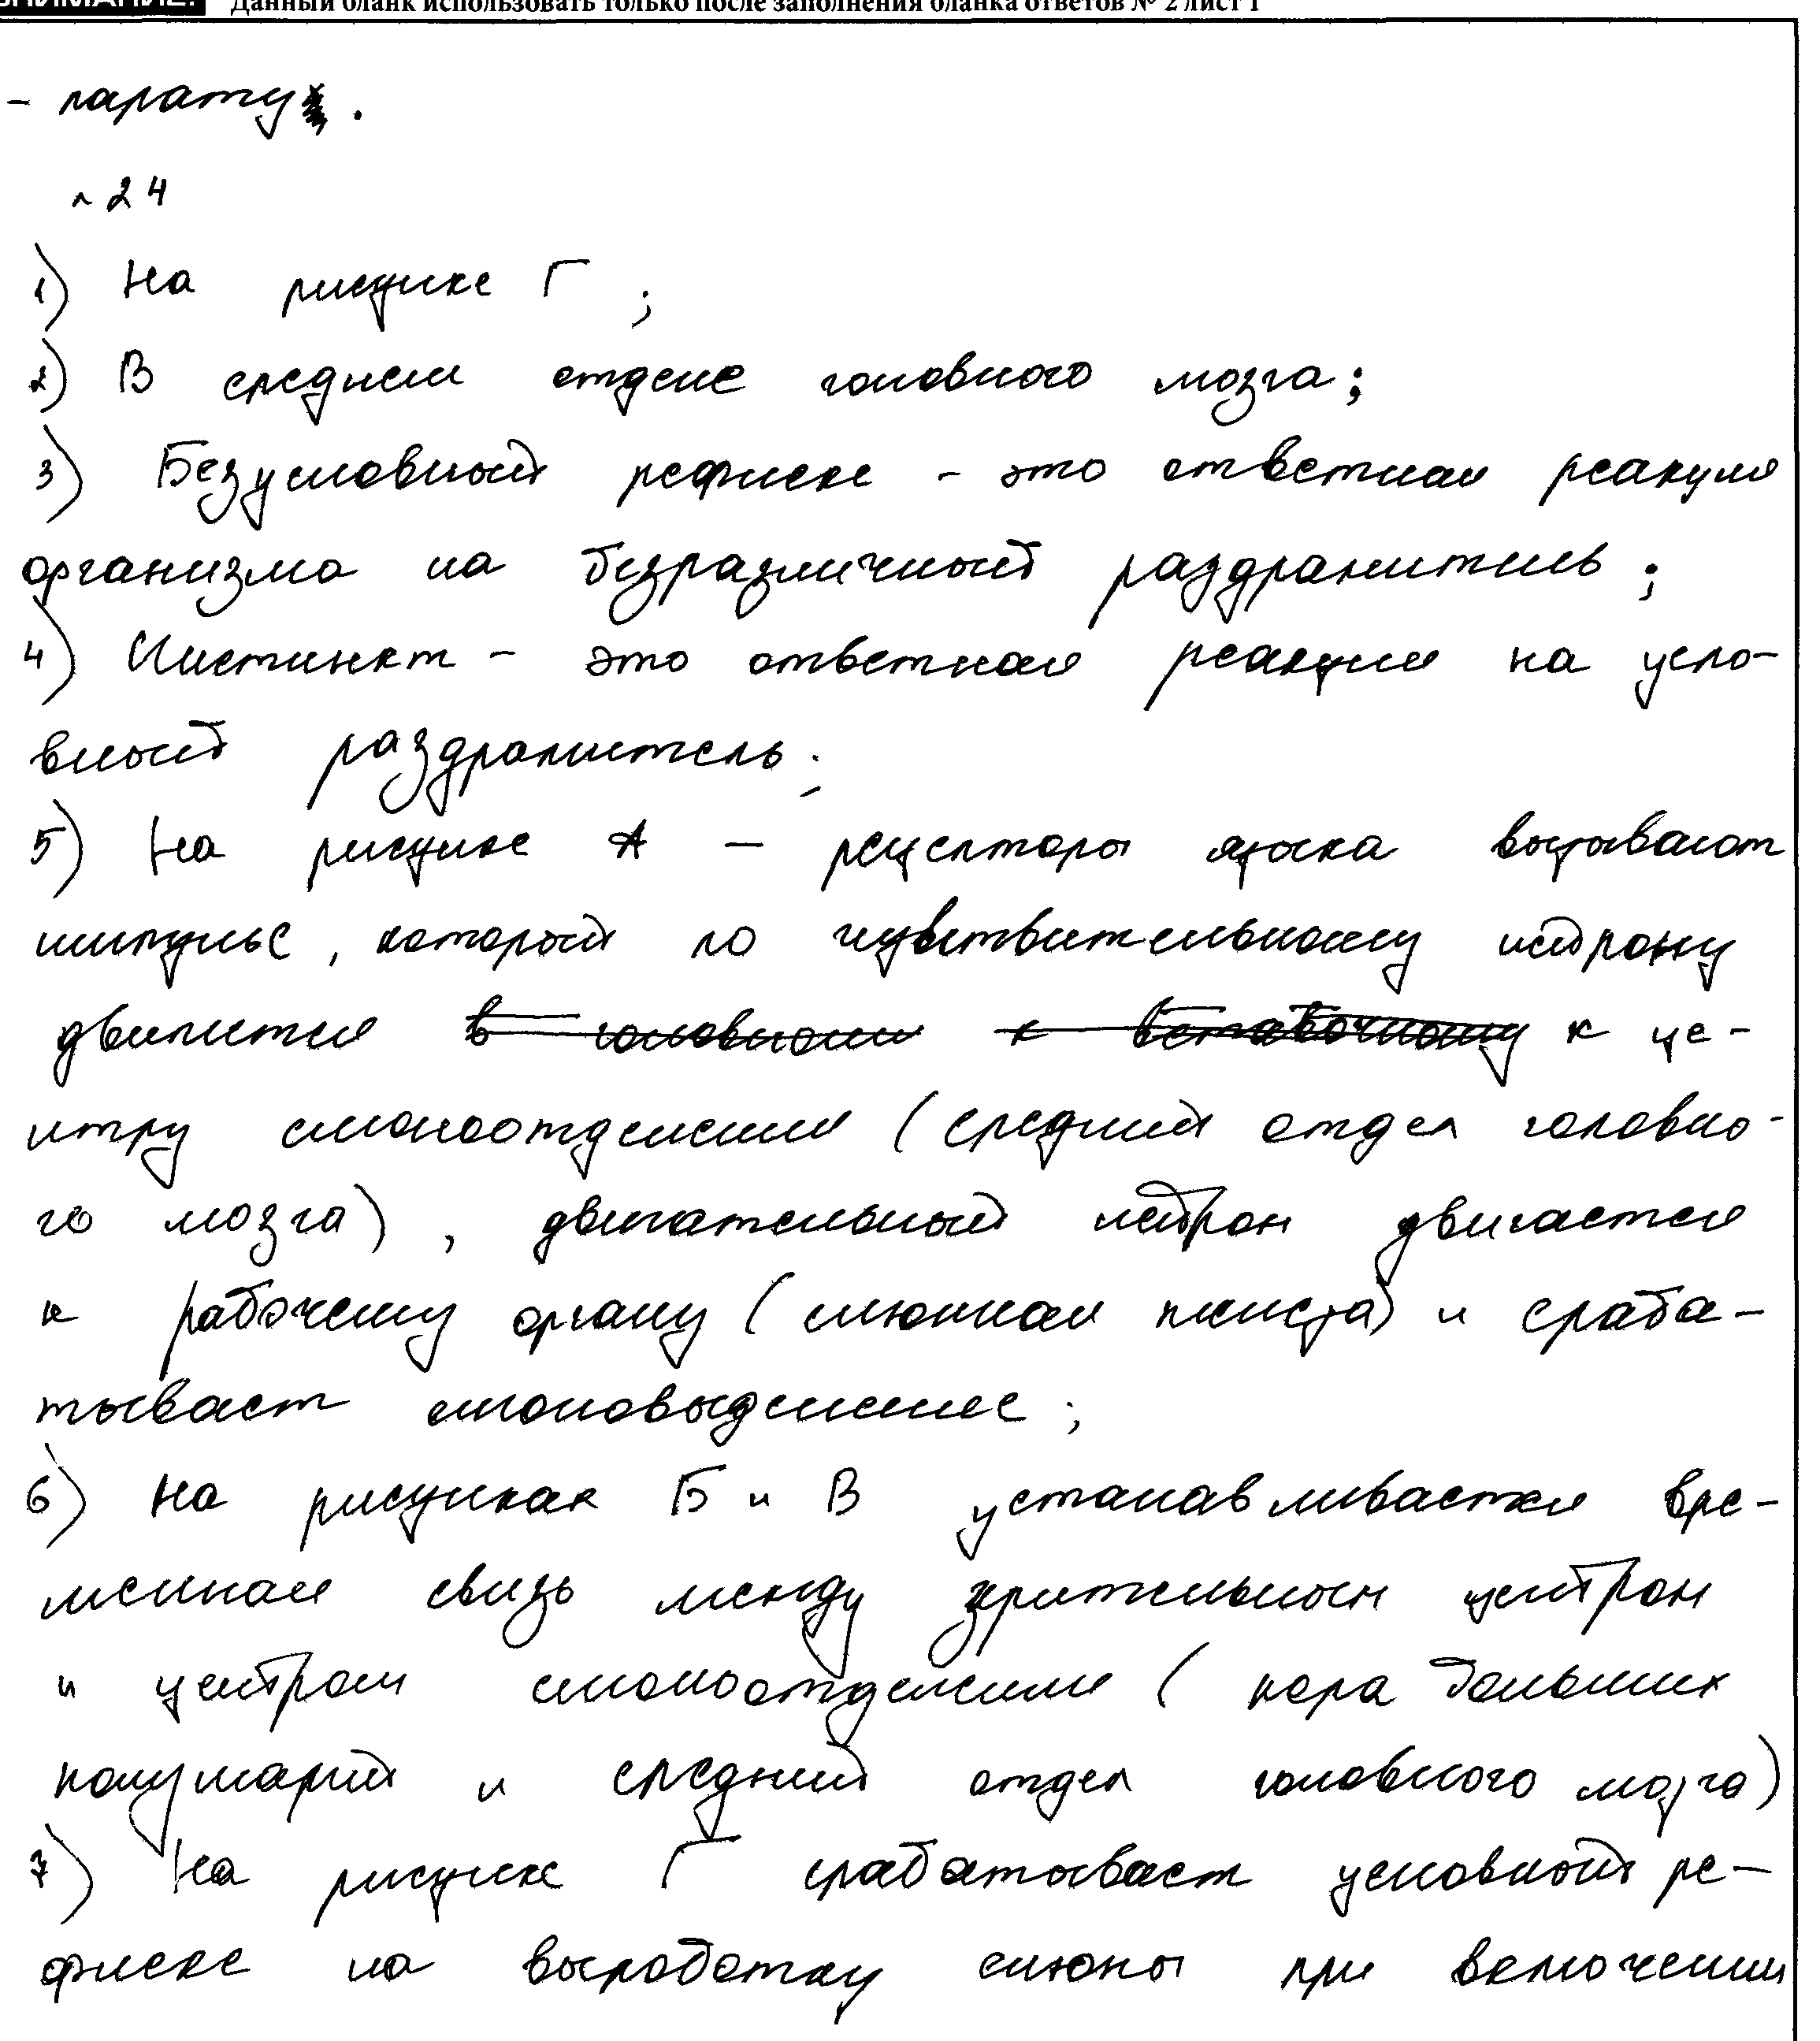 ВНИМАНИЕ! Данный бланк использовать только после заполнения бланка ответов № 2 лист 1
- парату.
~ 24
1) На рисунке Г ;
2) В среднем отделе головного мозга;
3) Безусловный рефлекс - это ответная реакция
организма на безразличный раздражитель ;
4) Инстинкт - это ответная реакция на усло-
вный раздражитель ;
5) На рисунке А - рецепторы языка вызывают
импульс, который по чувствительному нейрону
движится в головном к вставочному к це-
нтру слюноотделения (средний отдел головно-
го мозга) , двигательный нейрон двигается
к рабочему органу ( слюнная железа) и сраба-
тывает слюновыделение ;
6) На рисунках Б и В устанавливается вре-
менная связь между зрительным центром
и центром слюноотделения ( кора больших
полушарий и средний отдел головного мозга)
7) На рисунке Г срабатывает условный ре-
флекс на выработку слюны при включении